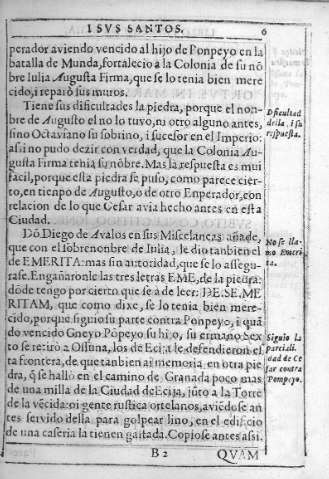 ISVS SANTOS. 6
perador aviendo vencido al hijo de Ponpeyo en la
batalla de Munda, fortalecio a la Colonia de su nõ
bre Iulia Augusta Firma, que se lo tenia bien mere
cido, i reparò sus muros.
Tiene sus dificultades la piedra, porque el non-
bre de Augusto el no lo tuvo, ni otro alguno antes,
sino Octaviano su sobrino, i sucesor en el Imperio:
asi no pudo dezir con verdad, que la Colonia Au-
gusta Firma tenia su nõbre. Mas la respuesta es mui
facil, porque esta piedra se puso, como parece cier-
to, en tienpo de Augusto, o de otro Enperador, con
relacion de lo que Cesar avia hecho antes en esta
Ciudad.
Dõ Diego de Avalos en sus Miscelaneas añade,
que con el sobrenonbre de Iulia, le dio tanbien el
de EMERITA: mas sin autoridad, que se lo assegu-
rase. Engañaronle las tres letras EME, de la piedra:
dõde tengo por cierto que se à de leer: DE. SE. ME
RITAM, que como dixe, se lo tenia bien mere-
cido, porque siguio su parte contra Ponpeyo, i quã
do vencido Gneyo Põpeyo su hijo, su ermano Sex
to se retirò a Ossuna, los de Ecija le defendieron es
ta frontera, de que tanbien ai memoria en otra pie
dra, q̃ se hallò en el camino de Granada poco mas
de una milla de la Ciudad de Ecija, jũto a la Torre
de la vẽcida: oi gente rustica ortelanos, aviẽdose an
tes servido dessa para golpear lino, en el edificio
de una caseria la tienen gastada. Copiose antes assi.
B 2 QVAM
Dificultad
della, i su
respuesta.
No se lla-
mo Emeri
ta.
Siguio la
parciali-
dad de Ce
sar contra
Ponpeyo.